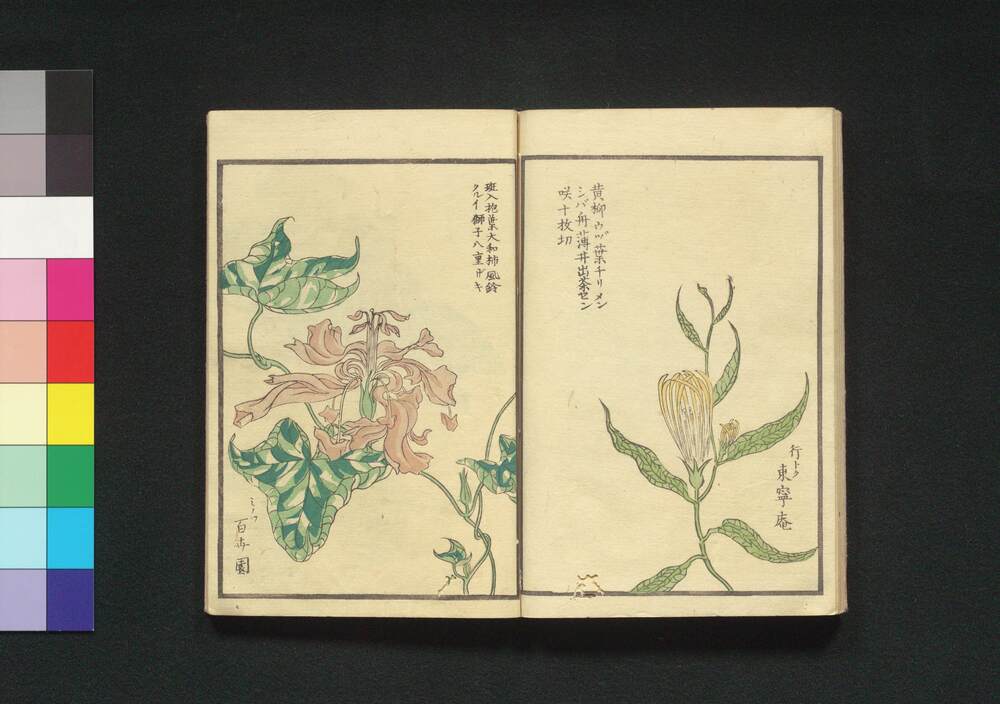 黄柳ウヅ葉チリメン
シバ舟薄井出茶セン
咲十枚切
行トク
東寧庵
斑入抱葉大和柿風鈴
クルイ獅子八重
ミノワ
百花園